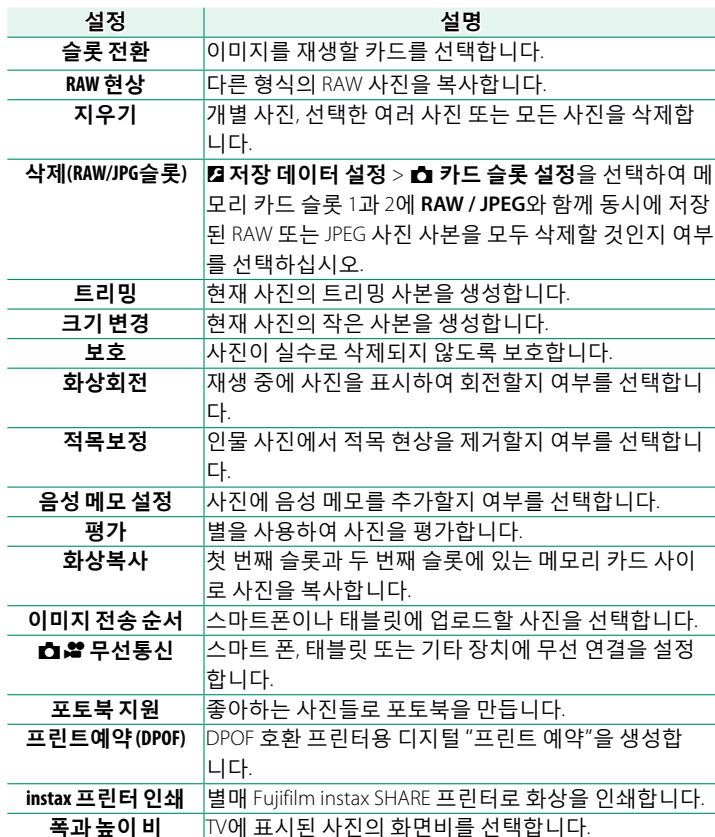 설정 설명
슬롯 전환 이미지를 재생할 카드를 선택합니다.
RAW 현상 다른 형식의 RAW 사진을 복사합니다.
지우기 개별 사진, 선택한 여러 사진 또는 모든 사진을 삭제합
니다.
삭제(RAW/JPG슬롯) 저장 데이터 설정 > 카드 슬롯 설정을 선택하여 메
모리 카드 슬롯 1과 2에 RAW / JPEG와 함께 동시에 저장
된 RAW 또는 JPEG 사진 사본을 모두 삭제할 것인지 여부
를 선택하십시오.
트리밍 현재 사진의 트리밍 사본을 생성합니다.
크기 변경 현재 사진의 작은 사본을 생성합니다.
보호 사진이 실수로 삭제되지 않도록 보호합니다.
화상회전 재생 중에 사진을 표시하여 회전할지 여부를 선택합니
다.
적목보정 인물 사진에서 적목 현상을 제거할지 여부를 선택합니
다.
음성 메모 설정 사진에 음성 메모를 추가할지 여부를 선택합니다.
평가 별을 사용하여 사진을 평가합니다.
화상복사 첫 번째 슬롯과 두 번째 슬롯에 있는 메모리 카드 사이
로 사진을 복사합니다.
이미지 전송 순서 스마트폰이나 태블릿에 업로드할 사진을 선택합니다.
무선통신 스마트 폰, 태블릿 또는 기타 장치에 무선 연결을 설정
합니다.
포토북 지원 좋아하는 사진들로 포토북을 만듭니다.
프린트예약 (DPOF) DPOF 호환 프린터용 디지털 “프린트 예약”을 생성합
니다.
instax 프린터 인쇄 별매 Fujifilm instax SHARE 프린터로 화상을 인쇄합니다.
폭과 높이 비 TV에 표시된 사진의 화면비를 선택합니다.